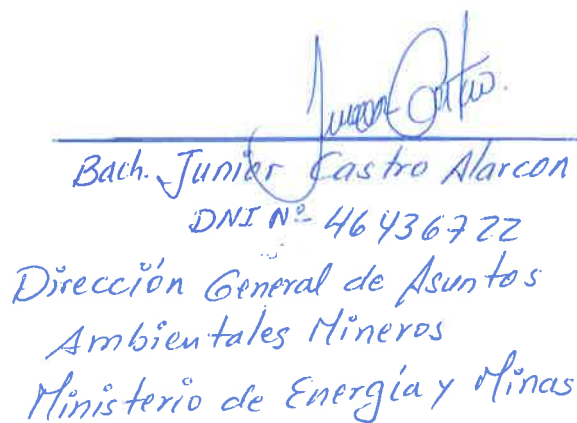 Junior Castro.
Bach. Junior Castro Alarcon
DNI Nº 46436722
Dirección General de Asuntos
Ambientales Mineros
Ministerio de Energía y Minas